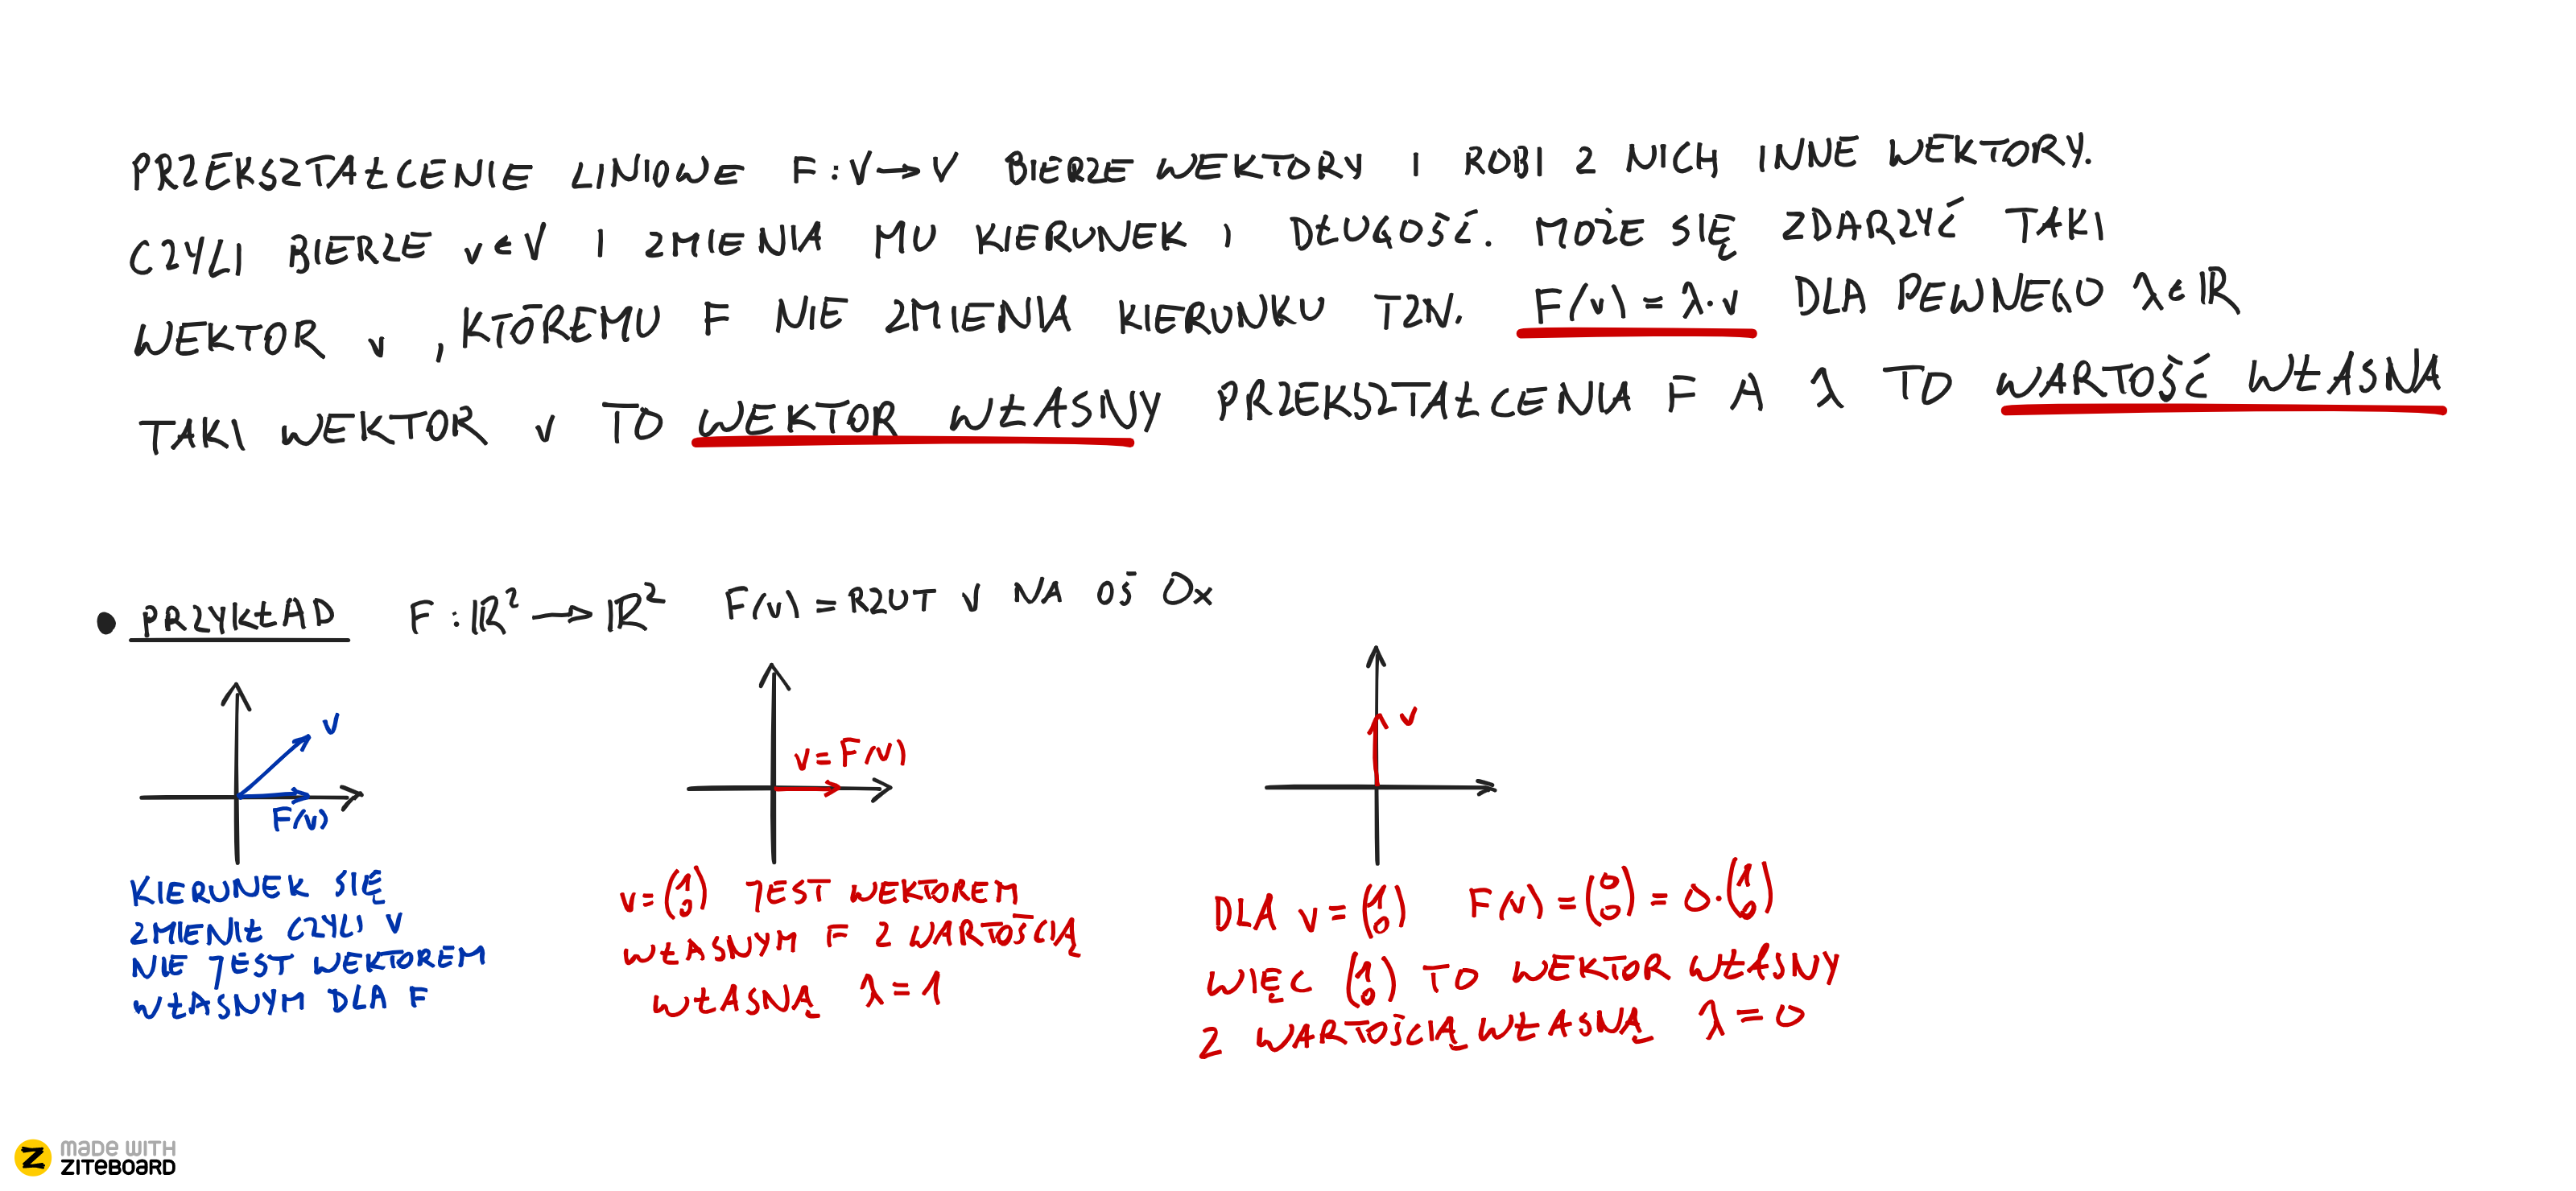 PRZEKSZTAŁCENIE LINIOWE F : V → V BIERZE WEKTORY I ROBI Z NICH INNE WEKTORY.
CZYLI BIERZE v ∈ V I ZMIENIA MU KIERUNEK I DŁUGOŚĆ. MOŻE SIĘ ZDARZYĆ TAKI
WEKTOR v , KTÓREMU F NIE ZMIENIA KIERUNKU TZN. F(v) = λ·v DLA PEWNEGO λ ∈ ℝ
TAKI WEKTOR v TO WEKTOR WŁASNY PRZEKSZTAŁCENIA F A λ TO WARTOŚĆ WŁASNA
• PRZYKŁAD F : ℝ² → ℝ² F(v) = RZUT v NA OŚ Ox
v
F(v)
KIERUNEK SIĘ
ZMIENIŁ CZYLI v
NIE JEST WEKTOREM
WŁASNYM DLA F
v = F(v)
v = (1 0) JEST WEKTOREM
WŁASNYM F Z WARTOŚCIĄ
WŁASNĄ λ = 1
v
DLA v = (1 0) F(v) = (0 0) = 0·(1 0)
WIĘC (1 0) TO WEKTOR WŁASNY
Z WARTOŚCIĄ WŁASNĄ λ = 0
Z MADE WITH
ZITEBOARD